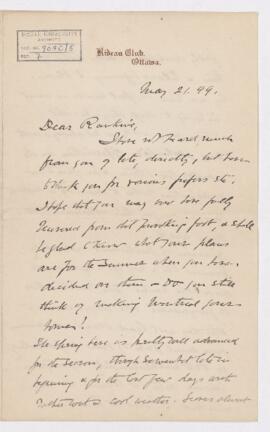 McGILL UNIVERSITY
ARCHIVES
ACC. NO.
REF. 7
Rideau Club,
Ottawa.
May 21. 99.
Dear Rankine,
I have not heard much
from you of late, directly, but have
to thank you for various papers etc.
I hope that you may ere now fully
recovered from that foot, & shall
be glad to know what your plans
are for the Summer when you have
decided on them & Do you still
think of making Montreal your
home?
The spring here is pretty well advanced
for the season, though somewhat late in
beginning & for the last few days with
rather wet & cool weather. almost